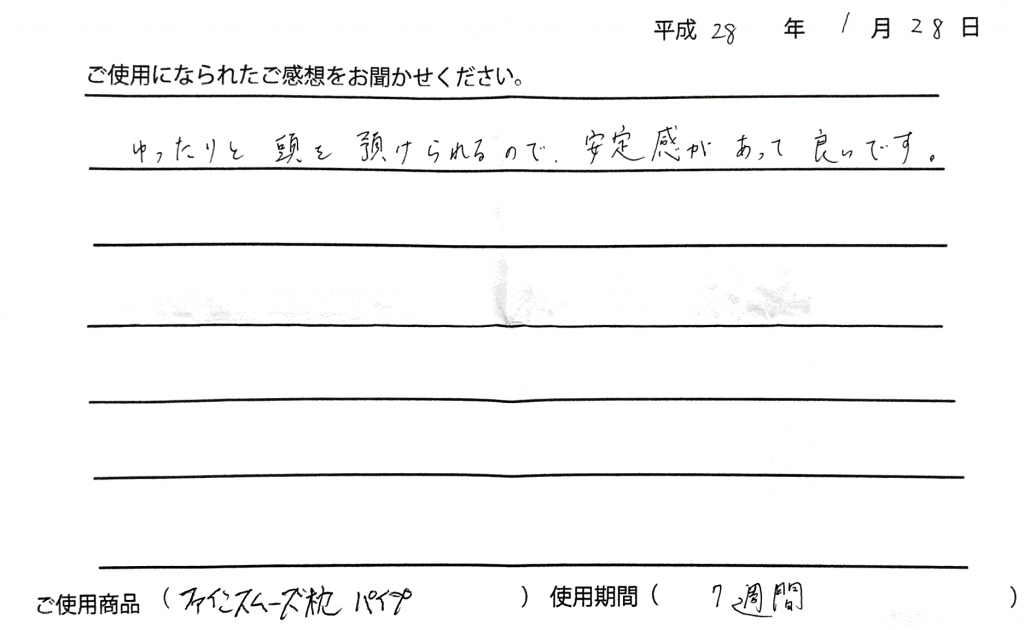 平成 28 年 1 月 28 日
ご使用になられたご感想をお聞かせください。
ゆったりと 頭を 預けられるので、安定感が あって 良いです。
ご使用商品 (ファインスムーズ枕 パイプ) 使用期間 (1週間)